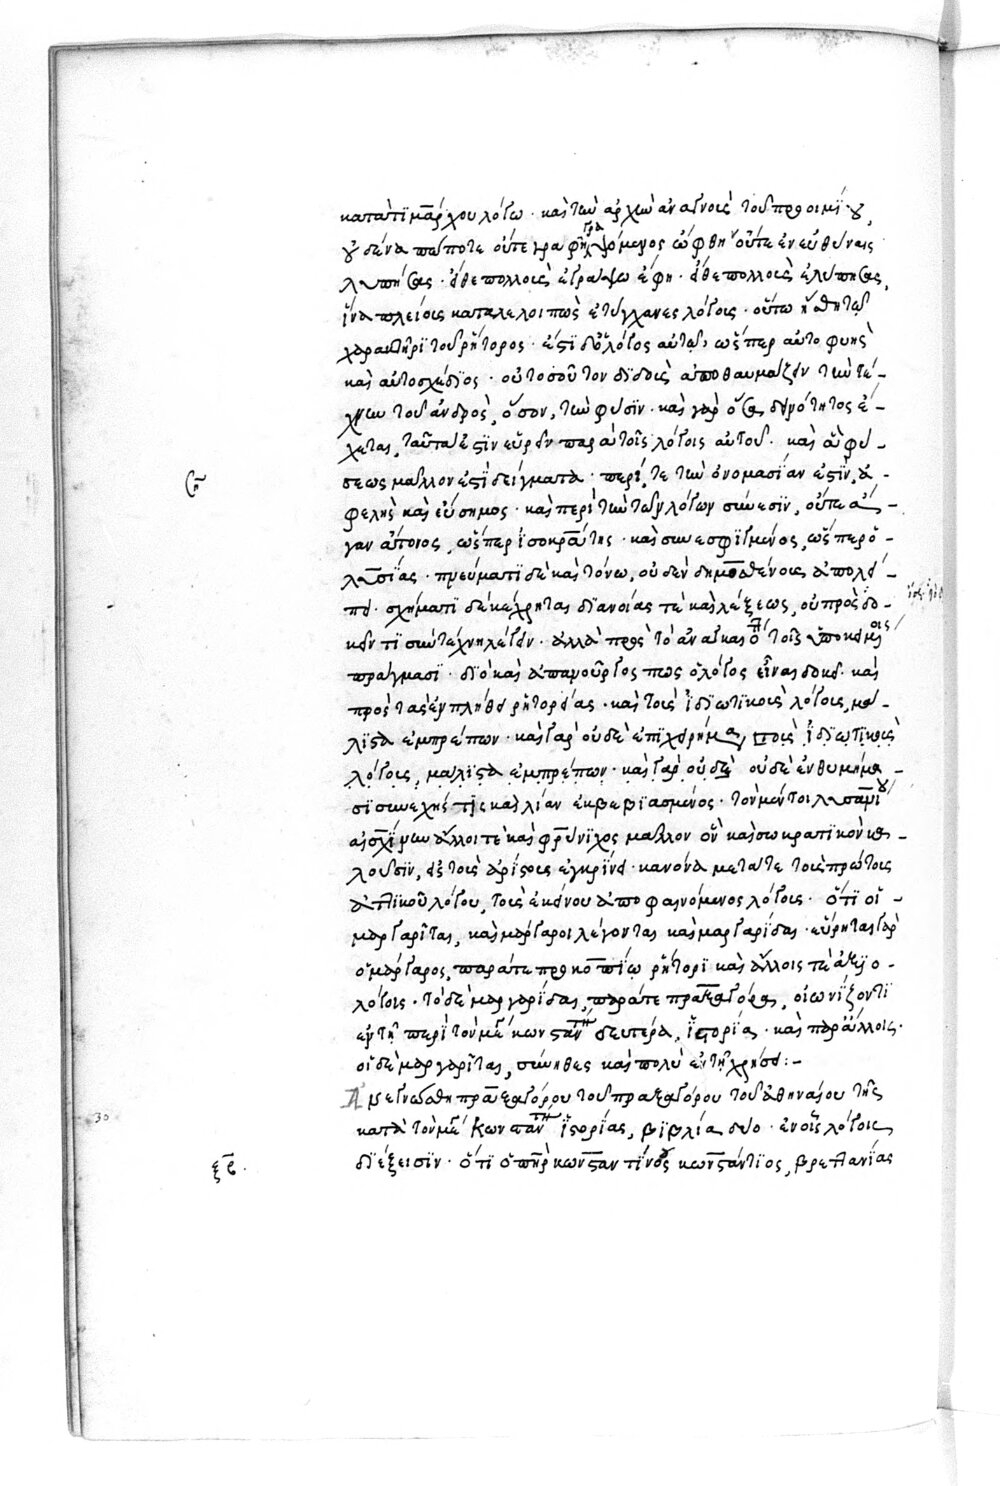 κατὰ τιμάρχου λόγω. καὶ τῶν ἀρχῶν ἀναγνοὺς τοῦ προοιμίου,
οὐδένα πώποτε οὔτε γραφὴν γραψόμενος ὤφθην οὔτε ἐν εὐθύναις
λυπήσας. εἰ δὲ πολλοὺς ἐγραψω ἔφη. εἰ δὲ πολλοὺς ἐλύπησας,
ἵνα πλείοις καταλελοιπὼς ἐτύγχανες λόγοις. οὕτω ἥσθη τῶ
χαρακτῆρι τοῦ ῥήτορος. ἐστὶ δὲ ὁ λόγος αὐτῶ, ὥσπερ αὐτοφυὴς
καὶ αὐτοσχέδιος. οὐ τοσοῦτον διδοὺς ἀποθαυμάζειν τὴν τέ-
χνην τοῦ ἀνδρὸς, ὅσον, τὴν φύσιν. καὶ γὰρ ὅσα δεινότητος ἔ-
χεται, ταῦτα ἐστὶν εὑρεῖν παρ' αὐτοῖς λόγοις αὐτοῦ. καὶ ἃ φύ-
σεως μᾶλλον ἐστὶ δείγματα. περί τε τὴν ὀνομασίαν ἐστὶν, ἀ-
φελὴς καὶ εὔσημος. καὶ περὶ τὴν τῶν λόγων σύνεσιν, οὔτε ἄ-
γαν ἄτονος, ὥσπερ ἰσοκράτης. καὶ συνεσφιγμένος, ὥσπερ ὁ
λυσίας. πνεύματι δὲ καὶ τόνω, οὐδὲν δημοσθένους ἀπολεί-
πει. σχήμασι δὲ κέχρηται διανοίας τὲ καὶ λέξεως, οὐ πρὸς δο-
κεῖν τι σὺν τέχνη λέγειν. ἀλλὰ πρὸς τὸ ἀναγκαιότατον τοῖς ὑποκειμένοις
πράγμασι. διὸ καὶ ἀπανοῦργος πως ὁ λόγος εἶναι δοκεῖ. καὶ
πρὸς τὰς ἐν πλήθει ῥητορείας. καὶ τοῖς ἰδιωτικοῖς λόγοις, μά-
λιστα ἐμπρέπων. καὶ γὰρ οὐδὲ ἐπιχειρήμασι τοῖς ἰδιωτικοῖς
λόγοις, μάλιστα ἐμπρέπων. καὶ γὰρ οὐδὲ οὐδὲ ἐνθυμήμα-
σι συνεχὴς τίς καὶ λίαν ἐκβεβιασμένος. τὸν μέντοι λυσανίου
αἰσχίνην ἄλλοι τὲ καὶ φρύνιχος μᾶλλον ὃν καὶ σωκρατικὸν κα-
λοῦσιν, εἰς τοὺς ἀρίστους ἐγκρίνει. κανόνα μετά τε τοὺς πρώτους
ἀττικοῦ λόγου, τοὺς ἐκείνου ἀποφαινόμενος λόγους. ὅτι οἱ
μαργαρῖται, καὶ μάργαροι λέγονται καὶ μαργαρίδαι. εὕρηται γὰρ
ὁ μάργαρος, παρά τε προκοπίω ῥήτορι καὶ ἄλλοις τὲ ἀξιο-
λόγοις. τὸ δὲ μαργαρίδαι, παρά τε πραξαγόρα, οἰωνίζοντι
ἐν τῆ περὶ τὸν μέγαν κωνσταντῖνον δευτέρα, ἱστορία. καὶ παρ' ἄλλοις.
οἱ δὲ μαργαρῖται, σύνηθες καὶ πολὺ ἐν τῆ χρήσει:-
Ἀνεγνώσθη πραξαγόρου τοῦ πραξαγόρου τοῦ ἀθηναίου τῆς
κατὰ τὸν μέγαν κωνσταντῖνον ἱστορίας, βιβλία δύο. ἐν οἷς λόγοις
διέξεισιν. ὅτι ὁ πατὴρ κωνσταντίνου κωνστάντιος, βρετανίας
30
ξβ.